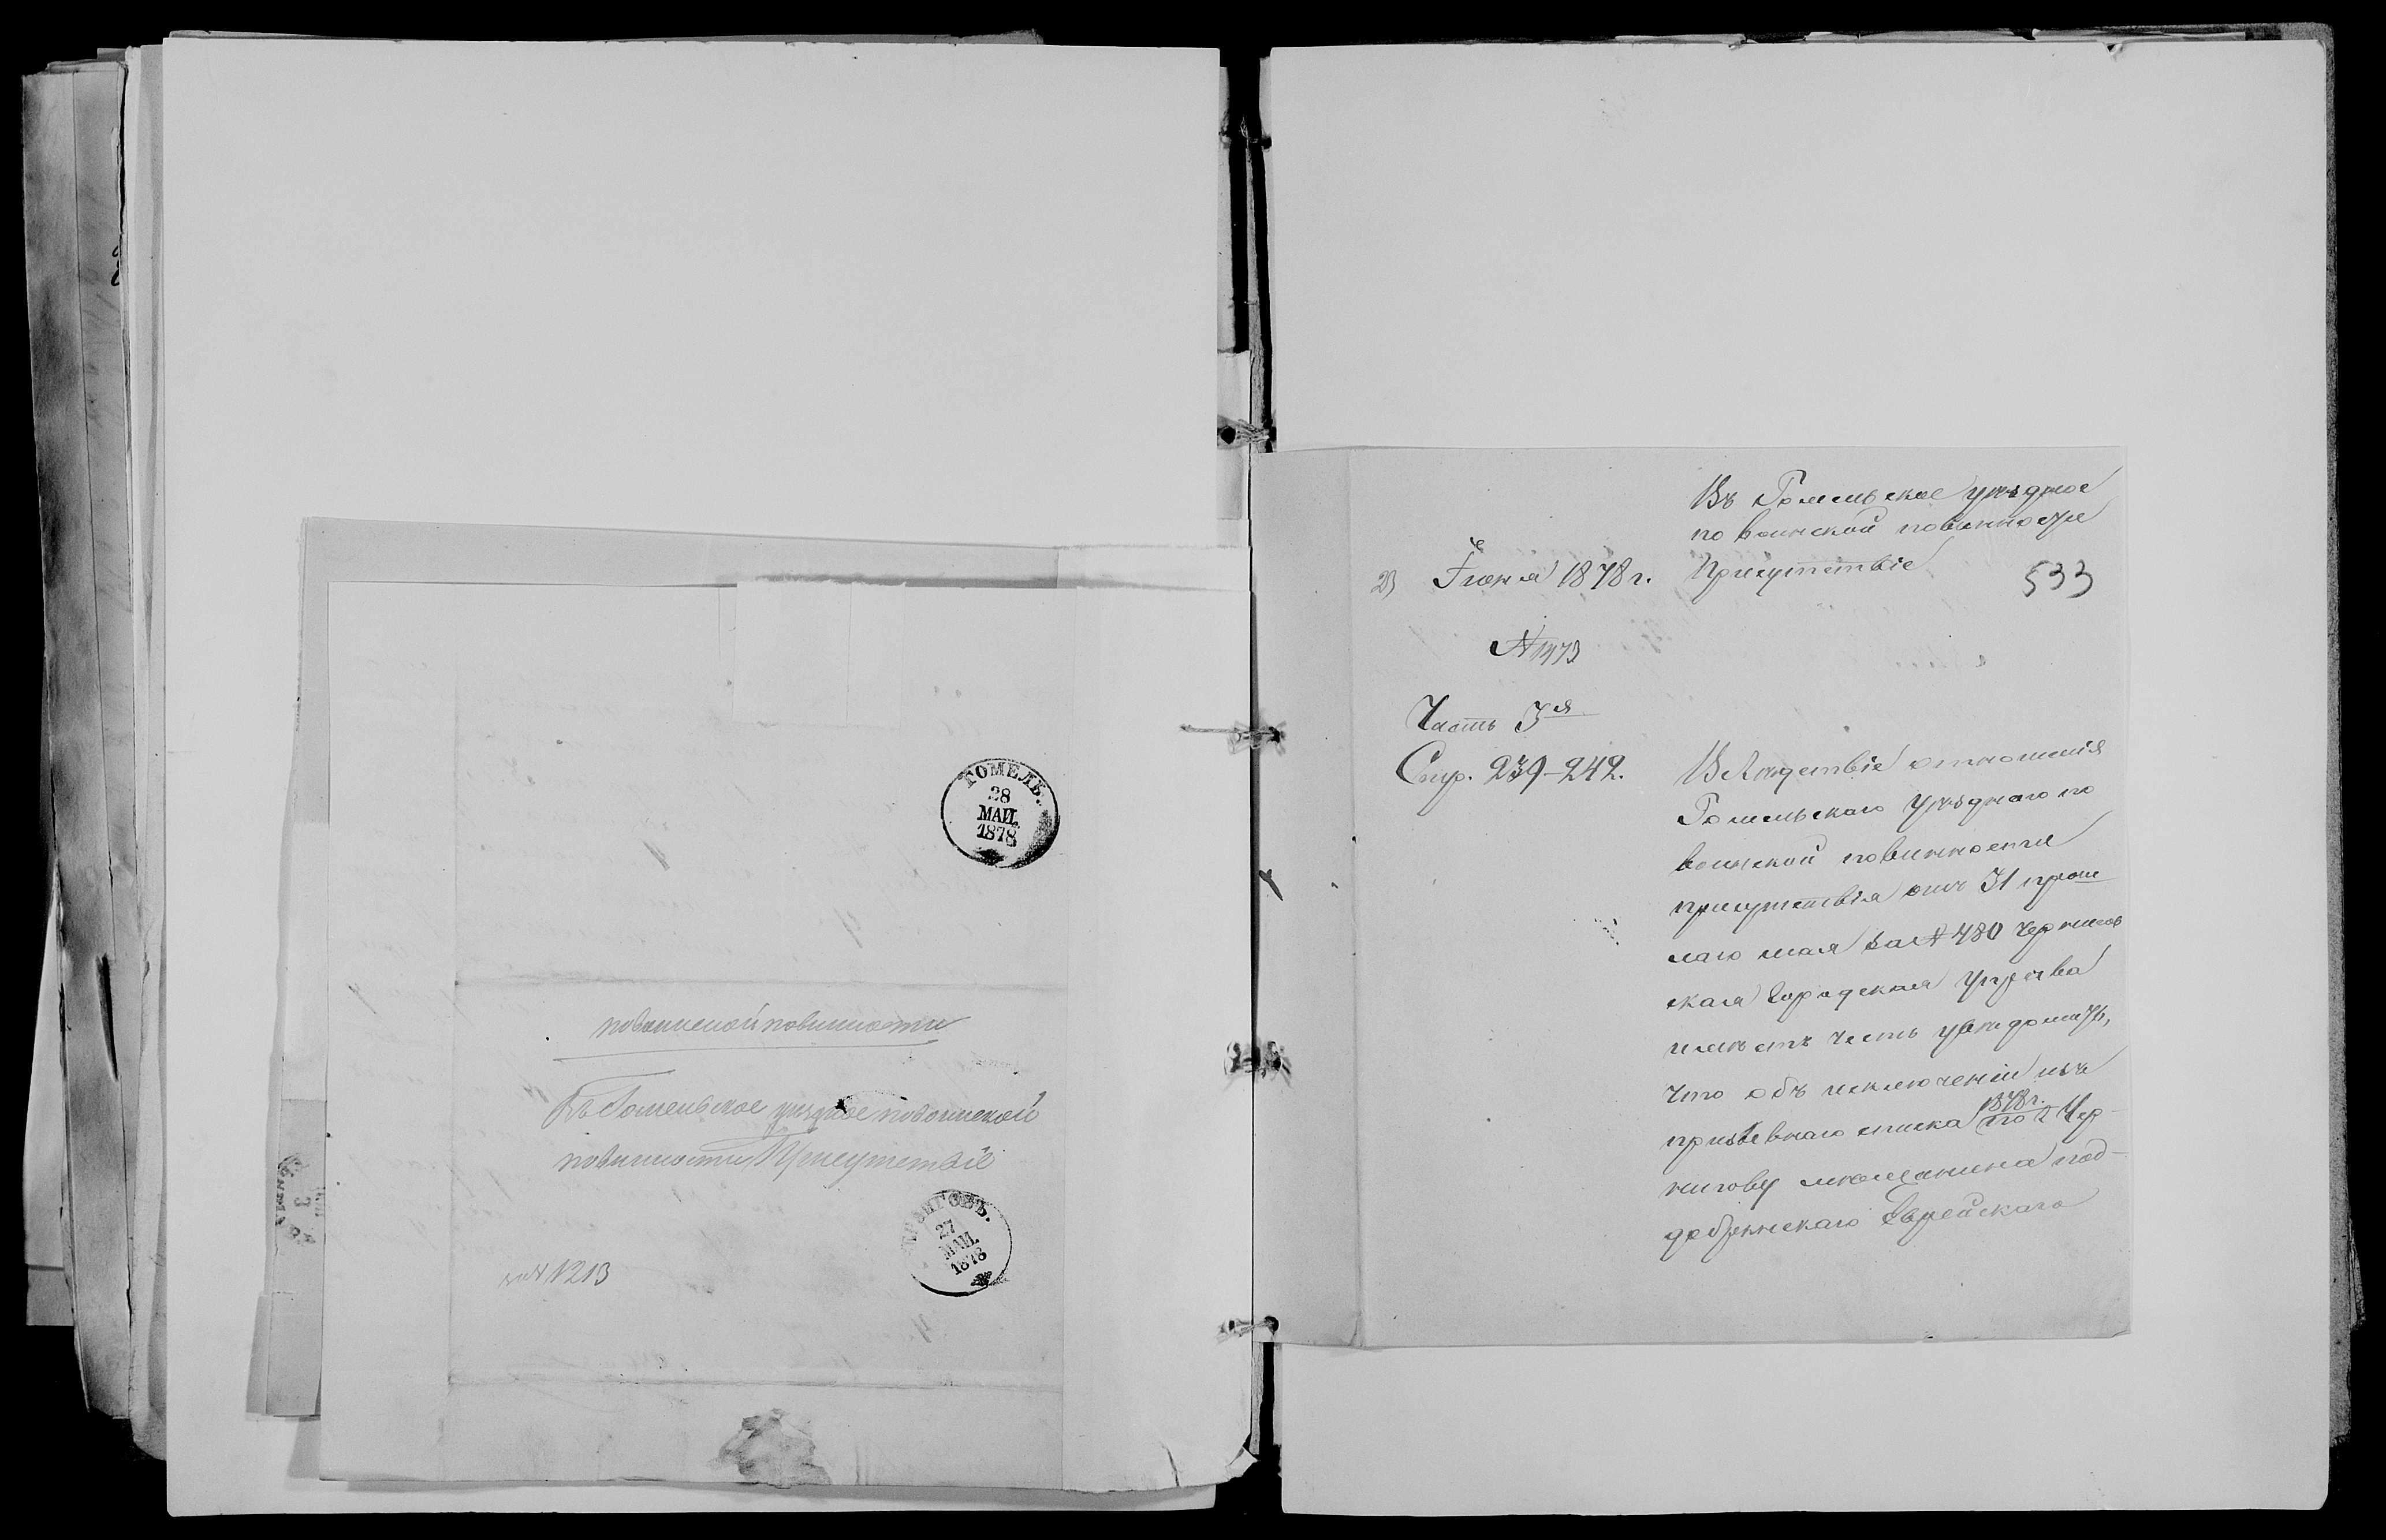 ГОМЕЛЬ.
28
МАЙ.
1878
по воинской повинности
Въ Гомельское уѣздное по воинской
повинности Присутствіе
ЧЕРНИГОВЪ.
27
МАЙ.
1878
№ 1213
Въ Гомельское уѣздное
по воинской повинности
Присутствіе
533
Іюня 1878 г.
№ 1473
Часть 3я
Стр. 239-242.
Вслѣдствіе отношенія
Гомельскаго Уѣзднаго по
воинской повинности
присутствія отъ 31 прош
лаго мая за № 480 Чернигов
ская Городская Управа
имѣетъ честь увѣдомить,
что объ исключеніи изъ
призывнаго списка 1878 г. по г. Чер-
нигову мѣщанина под-
добрянскаго Еврейскаго